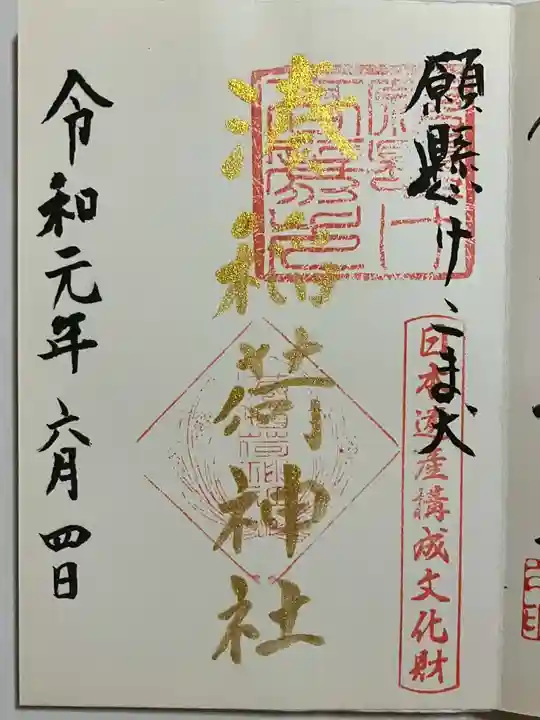 願懸けこま犬
日本遺産構成文化財
湊稲荷神社
令和元年六月四日